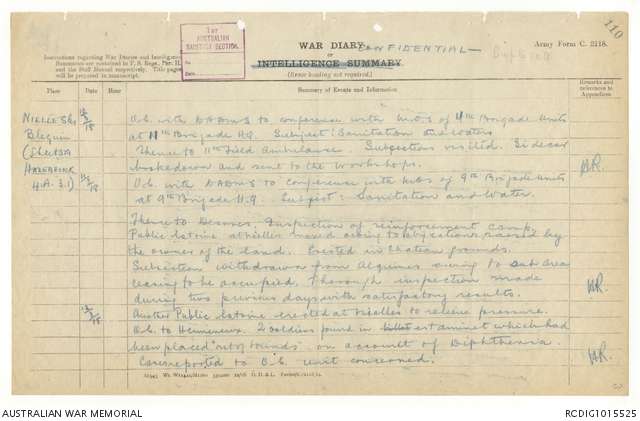 110
1ST
AUSTRALIAN
SANITARY SECTION.
No.
Date
WAR DIARY
OF
INTELLIGENCE SUMMARY
(Erase heading not required.)
CONFIDENTIAL
Duplicate
Army Form C. 2118.
Instructions regarding War Diaries and Intelligence
Summaries are contained in F. S. Regs., Part II.
and the Staff Manual respectively. Title pages
will be prepared in manuscript.
Place Date Hour Summary of Events and Information Remarks and references to Appendices
O.C. with DADMS to conference with M.O.s of 11th Brigade Units
at 11th Brigade HQ. Subject: Sanitation and Water
Thence to 11th Field Ambulance. Subsections visited. Sidecar
broke down and sent to the Workshops.
O.C. with DADMS to conference with M.O.s of 9th Brigade Units
at 9th Brigade H.Q. Subject: Sanitation and Water.
Thence to Desvres. Inspection of reinforcement camp.
Public latrine at Nielles moved owing to objections raised by
the owner of the land. Erected in Chateau grounds.
Subsection withdrawn from Alquines owing to sub area
ceasing to be occupied. Thorough inspection made
during two previous days with satisfactory results.
Another Public latrine erected at Nielles to relieve pressure.
O.C. to 2 soldiers found in billet estaminet which had
been placed "out of bounds" on account of Diphtheria.
Case reported to O.C. unit concerned.
Nielles les
Blequin
(Sheet 5A
Hazebrouck
4.A.3.1)
AUSTRALIAN WAR MEMORIAL
RCDIG1015525